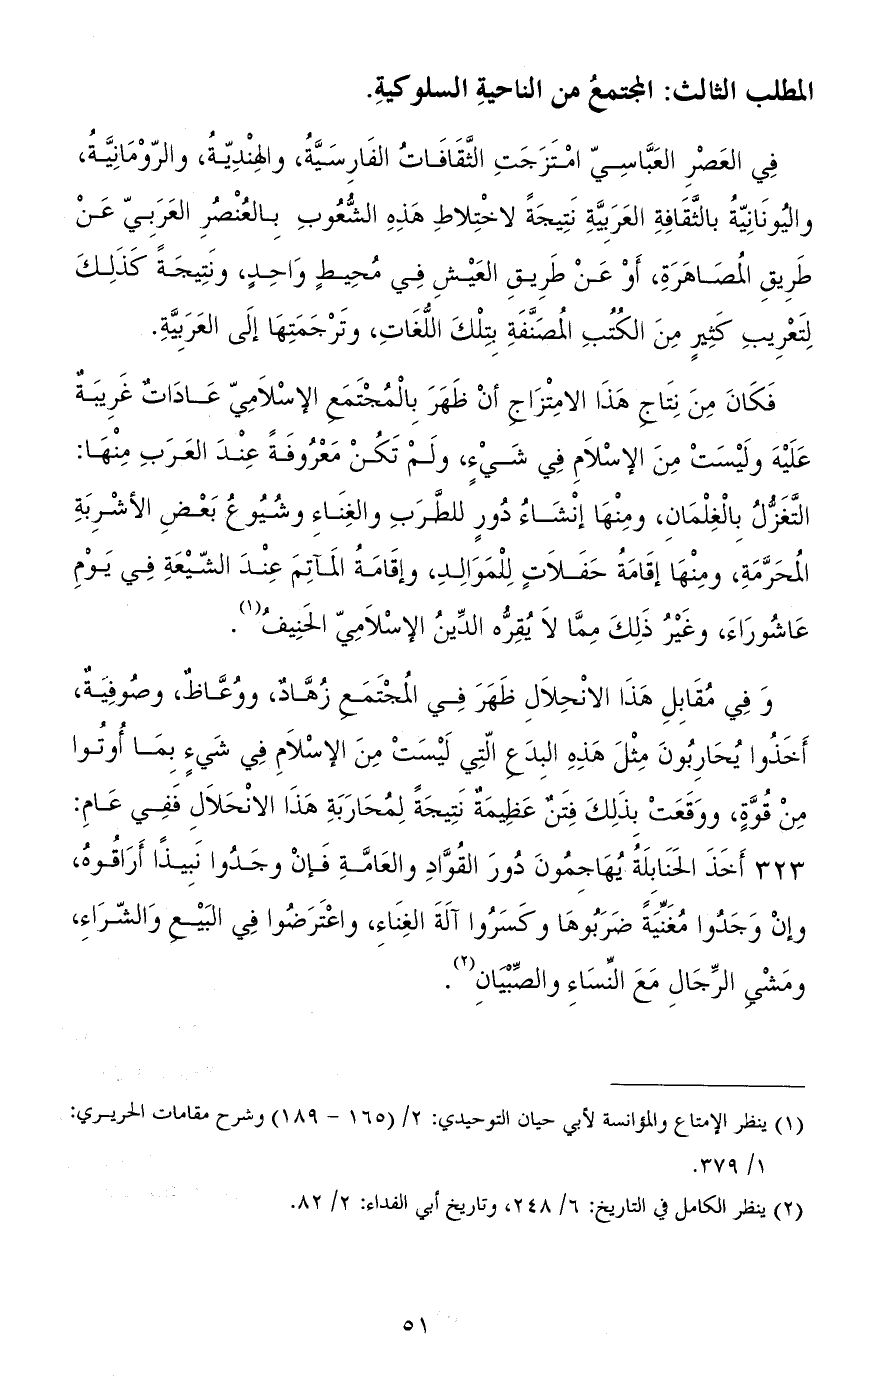 المطلب الثالث: المجتمعُ من الناحيةِ السلوكيةِ.
فِي العَصْرِ العَبَّاسِيّ امْتَزَجَتِ الثَّقَافَاتُ الفَارِسَيَّةُ، والهِنْدِيّةُ، والرّوْمَانِيَّةُ،
واليُونَانِيّةُ بالثَّقَافَةِ العَرَبِيَّةِ نَتِيجَةً لاخْتِلاطِ هَذِهِ الشُّعُوبِ بِالعُنْصُرِ العَرَبِيّ عَنْ
طَرِيقِ المُصَاهَرَةِ، أَوْ عَنْ طَرِيقِ العَيْشِ فِي مُحِيطٍ وَاحِدٍ، ونَتِيجَةً كَذَلِكَ
لِتَعْرِيبِ كَثِيرٍ مِنَ الكُتُبِ المُصَنَّفَةِ بِتِلْكَ اللُّغَاتِ، وتَرْجَمَتِهَا إلَى العَرَبِيَّةِ.
فَكَانَ مِنَ نِتَاجِ هَذَا الامْتِزَاجِ أنْ ظَهَرَ بِالْمُجْتَمَعِ الإسْلاَمِيّ عَادَاتٌ غَرِيبَةٌ
عَلَيْهَ ولَيْسَتْ مِنَ الإسْلاَمِ فِي شَيْءٍ، ولَمْ تَكُنْ مَعْرُوفَةً عِنْدَ العَرَبِ مِنْهَا:
التَّغَزُّلُ بِالْغِلْمَانِ، ومِنْهَا إنْشَاءُ دُورٍ للطَّرَبِ والغِنَاءِ وشُيُوعُ بَعْضِ الأشْرِبَةِ
المُحَرَّمَةِ، ومِنْهَا إقَامَةُ حَفَلاَتٍ لِلْمَوَالِدِ، وإقَامَةُ المَآتِمَ عِنْدَ الشّيْعَةِ فِي يَوْمِ
عَاشُورَاءَ، وغَيْرُ ذَلِكَ مِمَّا لاَ يُقِرُّه الدِّينُ الإسْلاَمِيّ الحَنِيفُ(١).
وَ فِي مُقَابِلِ هَذَا الانْحِلاَلِ ظَهَرَ فِي المُجْتَمَعِ زُهَّادٌ، ووُعَّاظٌ، وصُوفِيَةٌ،
أخَذُوا يُحَارِبُونَ مِثْلَ هَذِهِ البِدَعِ الّتِي لَيْسَتْ مِنَ الإسْلاَمِ فِي شَيءٍ بِمَا أُوتُوا
مِنْ قُوَّةٍ، ووَقَعَتْ بِذَلِكَ فِتَنٌ عَظِيمَةٌ نَتِيجَةً لِمُحَارَبَةِ هَذَا الانْحَلاَلِ فَفِي عَامِ:
٣٢٣ أخَذَ الحَنَابِلَةُ يُهَاجِمُونَ دُورَ القُوَّادِ والعَامَّةِ فَإنْ وجَدُوا نَبِيذًا أَرَاقُوهُ،
وإنْ وَجَدُوا مُغَنِّيَةً ضَرَبُوهَا وكَسَرُوا آلَةَ الغِنَاءِ، واعْتَرَضُوا فِي البَيْعِ وَالشّرَاءِ،
ومَشْيِ الرِّجَالِ مَعَ النِّسَاءِ والصِّبْيَانِ(٢).
(١) ينظر الإمتاع والمؤانسة لأبي حيان التوحيدي: ٢/ (١٦٥ - ١٨٩) وشرح مقامات الحريري:
١/ ٣٧٩.
(٢) ينظر الكامل في التاريخ: ٦/ ٢٤٨، وتاريخ أبي الفداء: ٢/ ٨٢.
٥١